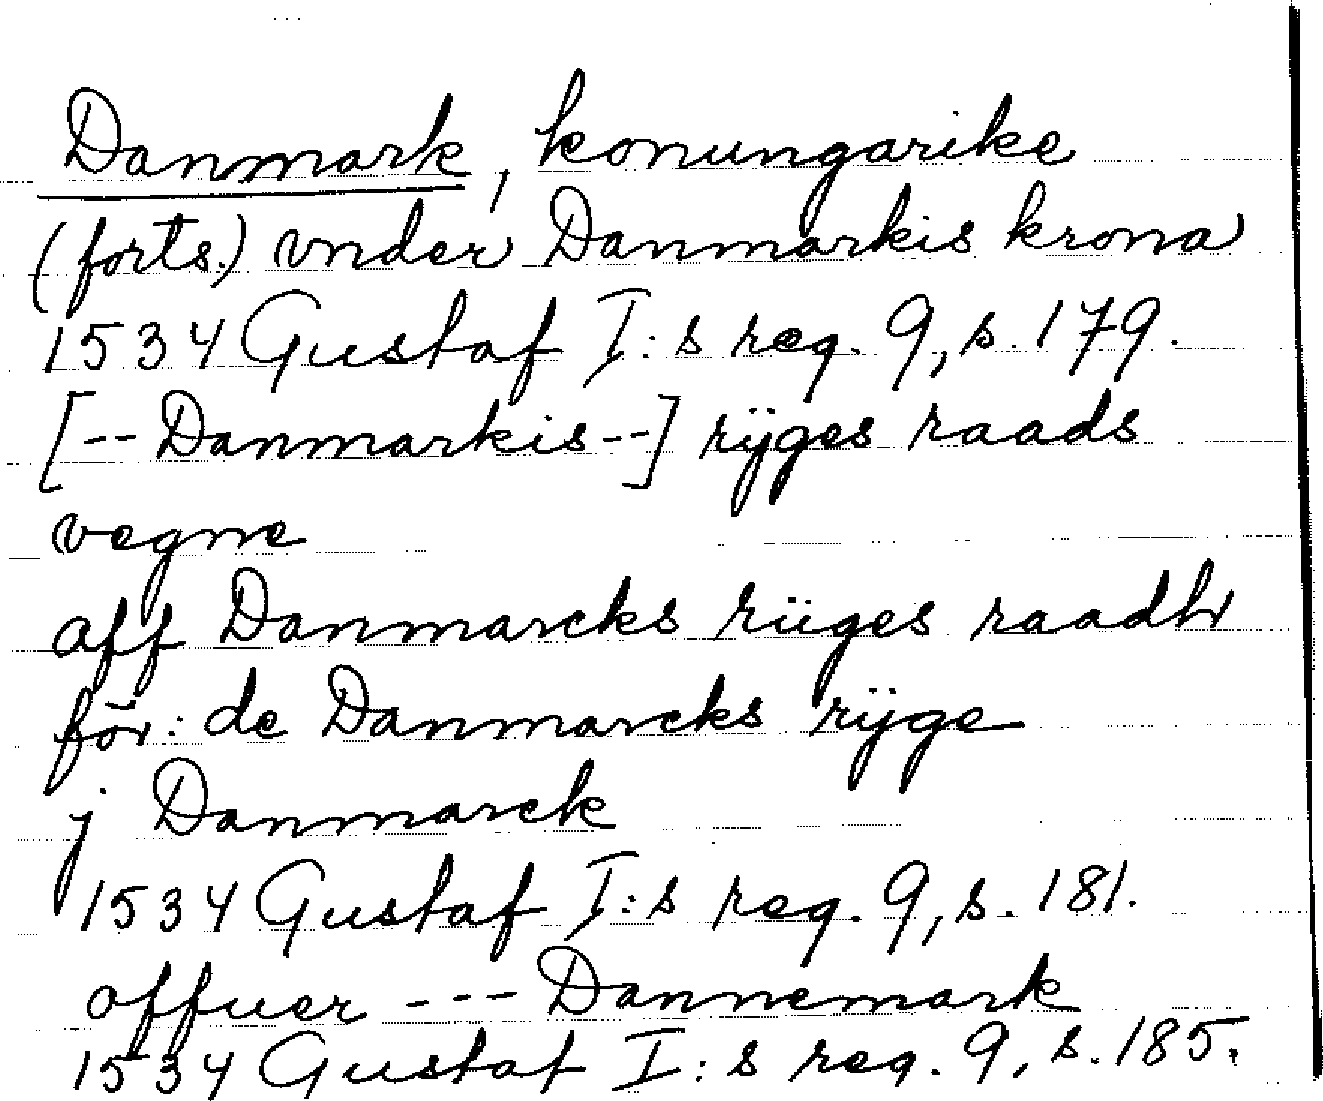 Danmark, konungarike
(forts.) vnder Danmarkis krona
1534 Gustaf I:s reg. 9, s. 179.
[-- Danmarkis --] rÿges raads
vegne
aff Danmarcks rüges raadh
för: de Danmarcks rÿge
j Danmarck
1534 Gustaf I:s reg. 9, s. 181.
offuer --- Dannemark
1534 Gustaf I:s reg. 9, s. 185.